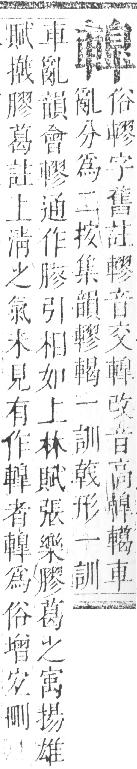 俗轇字舊註轇音交改音高轕車
亂分為二按集韻轇轕一訓戟形一訓
車亂韻會轇通作膠引相如上林賦張樂膠葛之寓揚雄
賦撠膠葛註上清之氣未見有作者為俗增宐刪